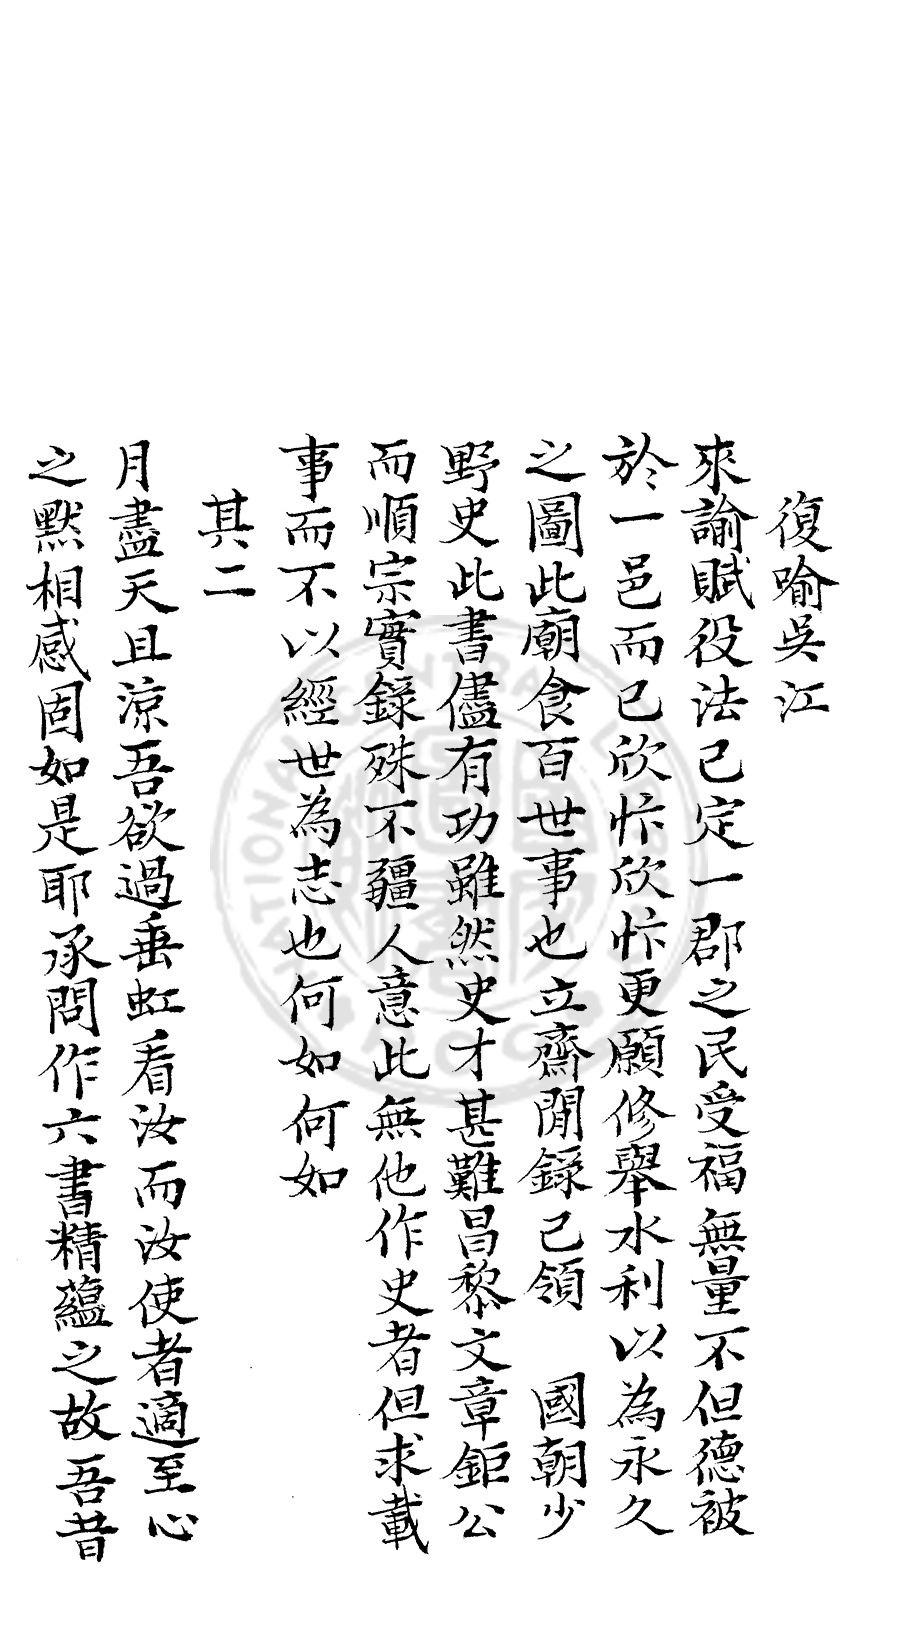 復喻吳江
來諭賦役法已定一郡之民受福無量不但德被
於一邑而已欣忭欣忭更願修舉水利以為永久
之圖此廟食百世事也立齋閒錄已領　國朝少
野史此書儘有功雖然史才甚難昌黎文章鉅公
而順宗實錄殊不彊人意此無他作史者但求載
事而不以經世為志也何如何如
其二
月盡天且涼吾欲過垂虹看汝而汝使者適至心
之默相感固如是耶承問作六書精蘊之故吾昔